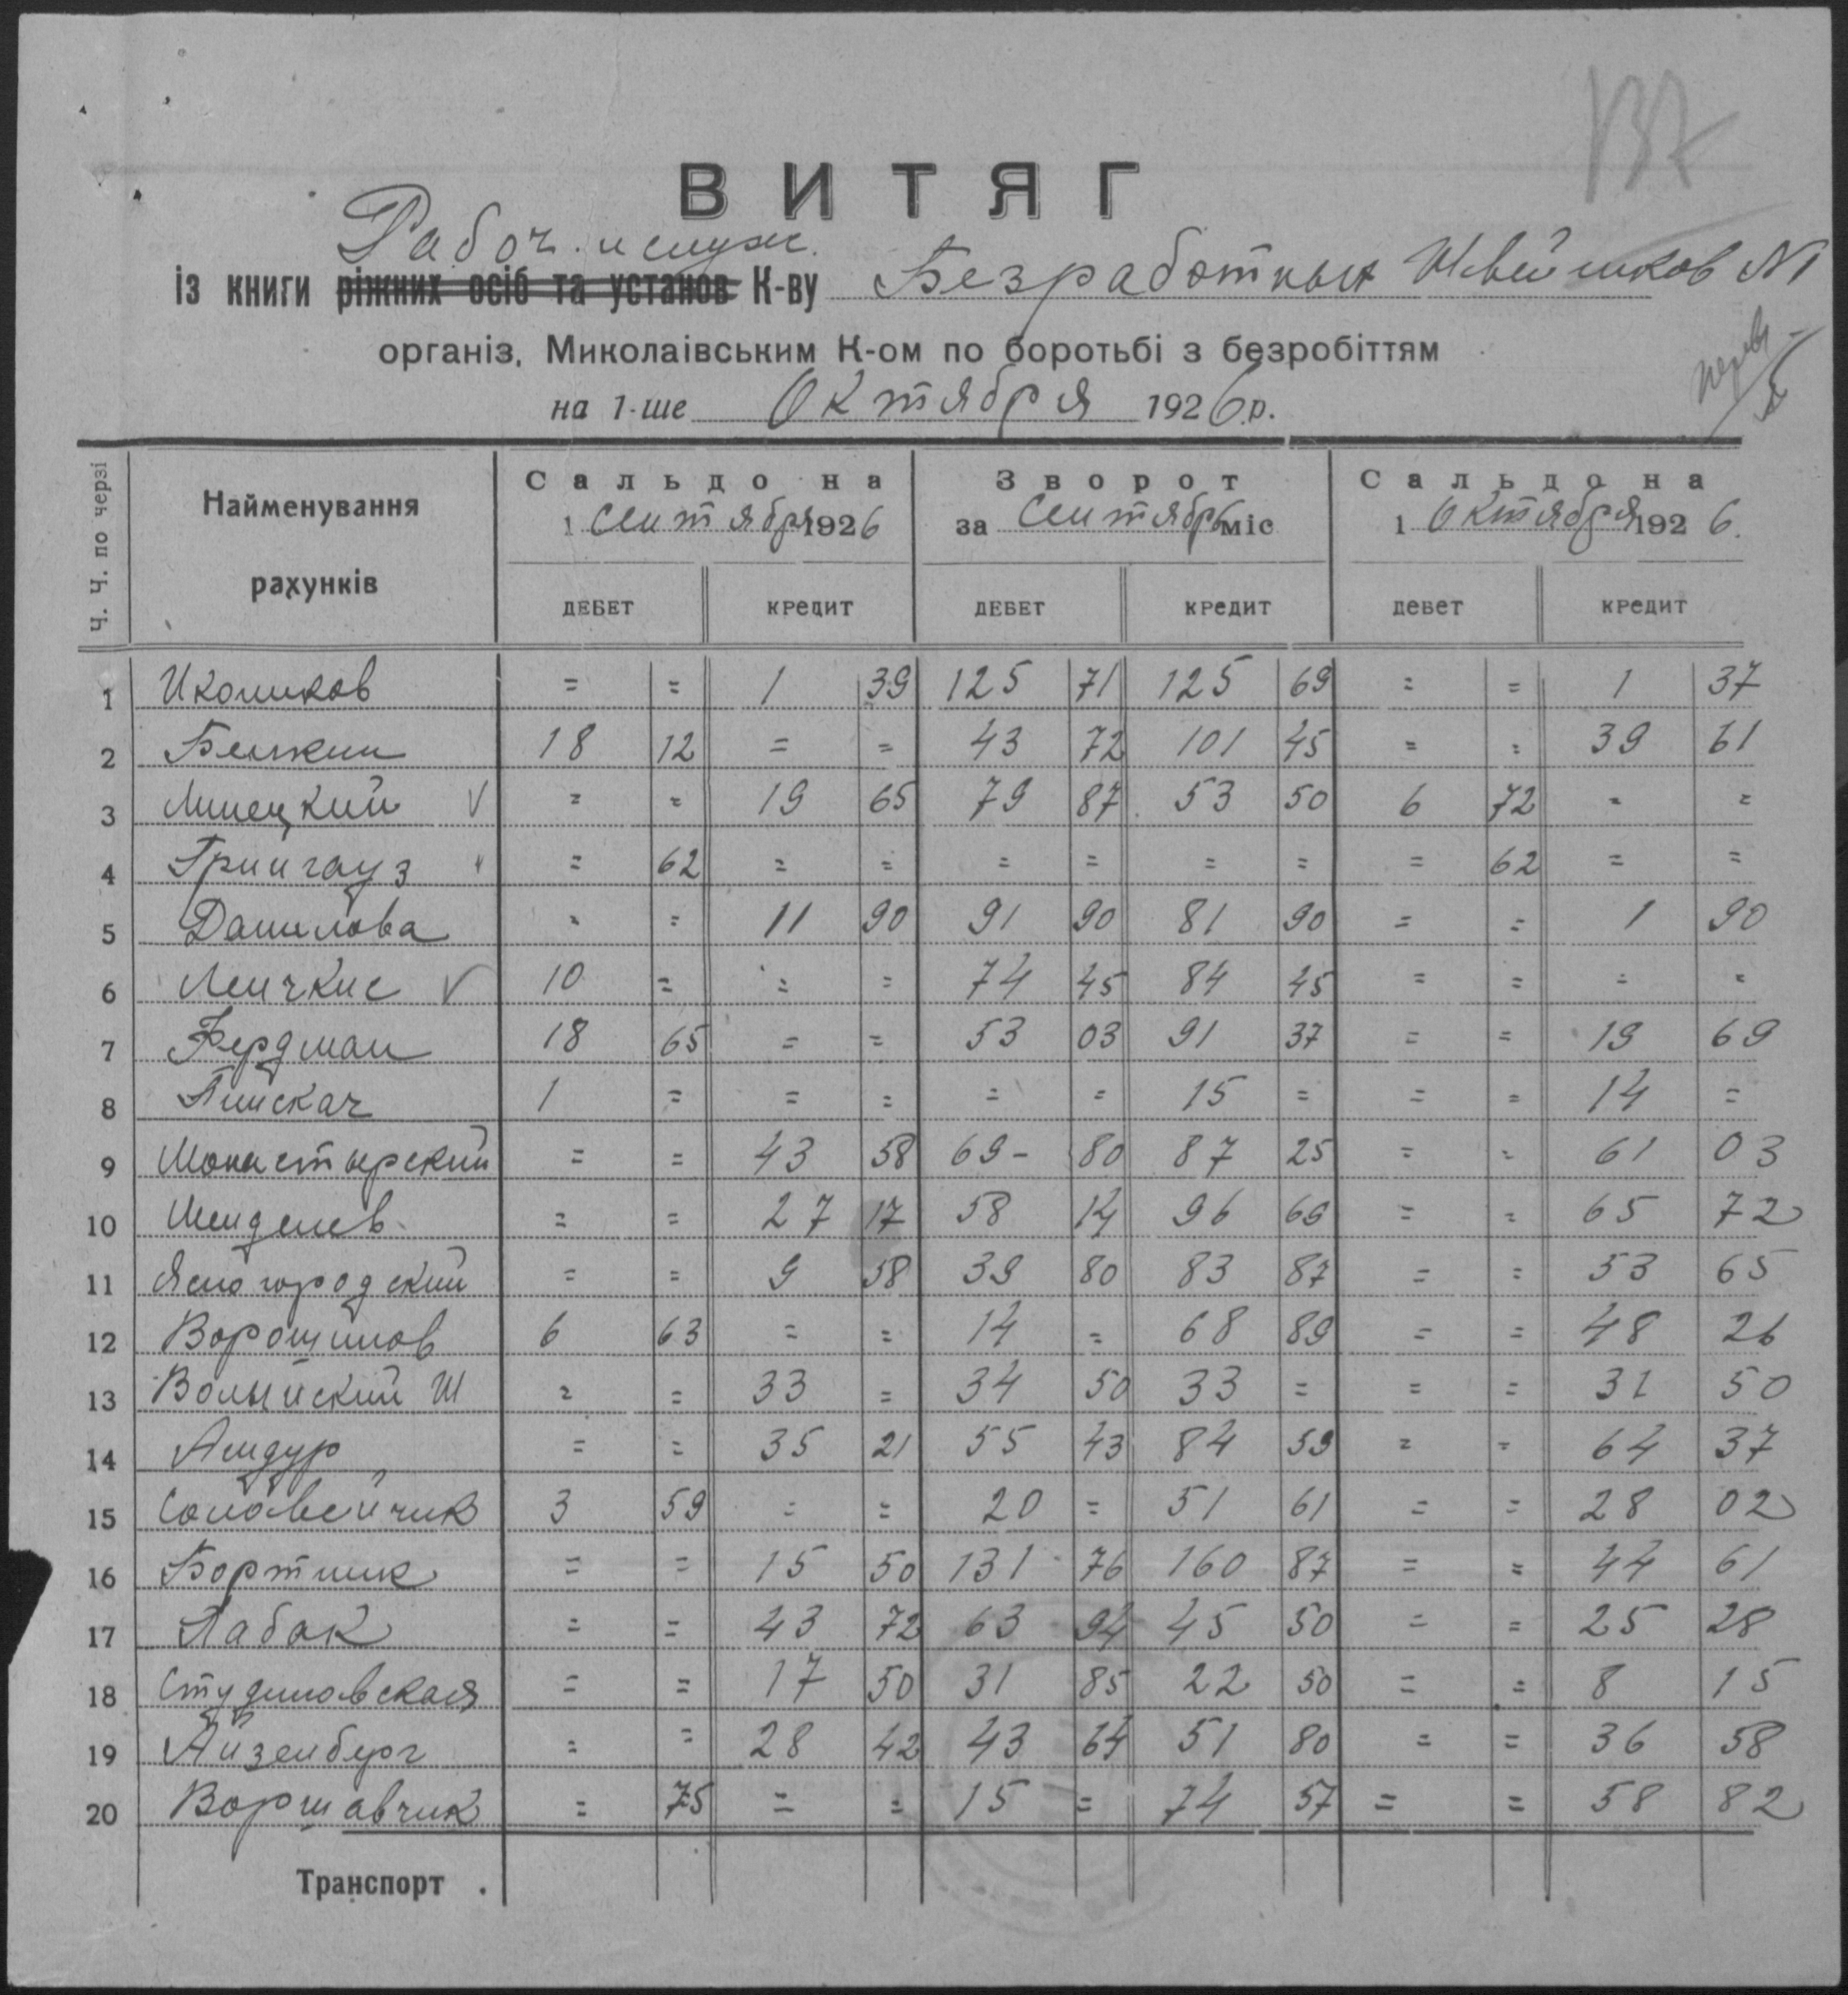 137
ВИТЯГ
Рабоч. и служ.
із книги ріжних осіб та установ К-ву Безработных Швейников №1
організ. Миколаівським К-ом по боротьбі з безробіттям
на 1-ше Октября 1926 р.
Ч. Ч. по черзі | Найменування рахунків | Сальдо на 1 Сентября 1926 | Зворот за Сентябрь міс | Сальдо на 1 Октября 1926.
ДЕБЕТ | КРЕДИТ | ДЕБЕТ | КРЕДИТ | ДЕБЕТ | КРЕДИТ
1 = = 1 39 125 71 125 69 = = 1 37
2 Белкин 18 12 = = 43 72 101 45 = = 39 61
3 Липецкий V = = 19 65 79 87 53 50 6 72 = =
4 Грингауз v = 62 = = = = = = = 62 = =
5 Данилова = = 11 90 91 90 81 90 = = 1 90
6 V 10 = = = 74 45 84 45 = = = =
7 Фердман 18 65 = = 53 03 91 37 = = 19 69
8 Плискач 1 = = = = = 15 = = = 14 =
9 Монастырский = = 43 58 69 - 80 87 25 = = 61 03
10 = = 27 17 58 14 96 69 = = 65 72
11 Ясногородский = = 9 58 39 80 83 87 = = 53 65
12 Ворошилов 6 63 = = 14 = 68 89 = = 48 26
13 Волынский Ш = = 33 = 34 50 33 = = = 31 50
14 Амдур = = 35 21 55 43 84 59 = = 64 37
15 Соловейчик 3 59 = = 20 = 51 61 = = 28 02
16 Бортник = = 15 50 131 76 160 87 = = 44 61
17 Лабок = = 43 72 63 94 45 50 = = 25 28
18 Студиновская = = 17 50 31 85 22 50 = = 8 15
19 Айзенберг = = 28 42 43 64 51 80 = = 36 58
20 Воршавчик = 75 = = 15 = 74 57 = = 58 82
Транспорт .